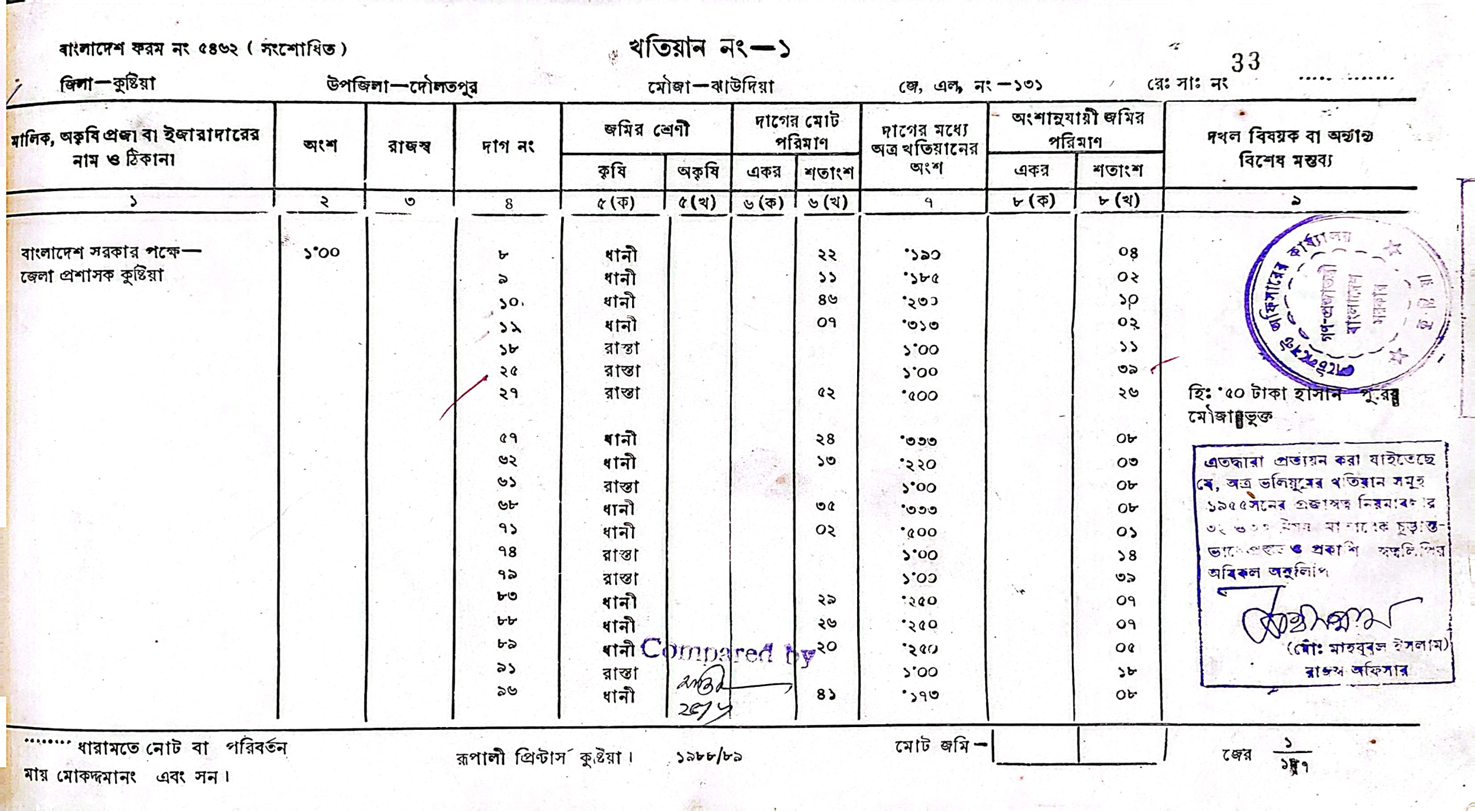 বাংলাদেশ ফরম নং ৫৪৬২ ( সংশোধিত )
খতিয়ান নং—১
33
জিলা—কুষ্টিয়া উপজিলা—দৌলতপুর মৌজা—ঝাউদিয়া জে, এল, নং —১৩১ রেঃ সাঃ নং ...... ..........
মালিক, অকৃষি প্রজা বা ইজারাদারের নাম ও ঠিকানা অংশ রাজস্ব দাগ নং জমির শ্রেণী দাগের মোট পরিমাণ দাগের মধ্যে অত্র খতিয়ানের অংশ অংশানুযায়ী জমির পরিমাণ দখল বিষয়ক বা অন্যান্য বিশেষ মন্তব্য
কৃষি অকৃষি একর শতাংশ একর শতাংশ
১ ২ ৩ ৪ ৫ (ক) ৫ (খ) ৬ (ক) ৬ (খ) ৭ ৮ (ক) ৮ (খ) ৯
বাংলাদেশ সরকার পক্ষে— ১·০০ ৮ ধানী ২২ ·১৯০ ০৪
জেলা প্রশাসক কুষ্টিয়া ৯ ধানী ১১ ·১৮৫ ০২
১০ ধানী ৪৬ ·২৩০ ১০
১১ ধানী ০৭ ·৩১৩ ০২
১৮ রাস্তা ১·০০ ১১
২৫ রাস্তা ১·০০ ৩৯
২৭ রাস্তা ৫২ ·৫০০ ২৬ হিঃ ·৫০ টাকা হাসান পু
মৌজা ভুক্ত
৫৭ ধানী ২৪ ·৩৩৩ ০৮
৬২ ধানী ১৩ ·২২০ ০৩
৬১ রাস্তা ১·০০ ০৮
৬৮ ধানী ৩৫ ·৩৩৩ ০৮
৭১ ধানী ০২ ·৫০০ ০১
৭৪ রাস্তা ১·০০ ১৪
৭৯ রাস্তা ১·০০ ৩৯
৮৩ ধানী ২৯ ·২৫০ ০৭
৮৮ ধানী ২৬ ·২৫০ ০৭
৮৯ ধানী ২০ ·২৫০ ০৫
৯১ রাস্তা ১·০০ ১৮
৯৬ ধানী ৪১ ·১৭৩ ০৮
Compared by
অফিসারের কার্য্যালয়
গণ-প্রজাতন্ত্রী
বাংলাদেশ
সরকার
এতদ্ধারা প্রত্যয়ন করা যাইতেছে
যে, অত্র ভলিয়ুমের খতিয়ান সমূহ
১৯৫৫সনের প্রজাস্বত্ব নিয়মাবলীর
চূড়ান্ত-
ও প্রকাশি
অবিকল অনুলিপি
(মোঃ মাহবুবল ইসলাম)
রাজস্ব অফিসার
........ ধারামতে নোট বা পরিবর্তন রূপালী প্রিণ্টার্স কুষ্টিয়া। ১৯৮৮/৮৯ মোট জমি— জের ১
মায় মোকদ্দমানং এবং সন।